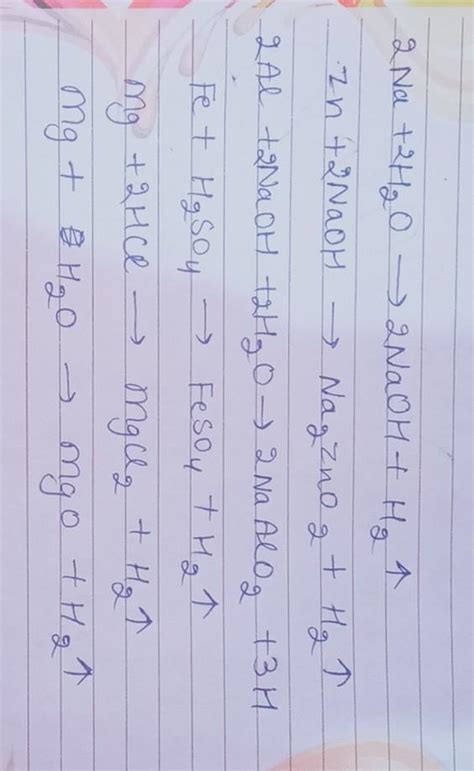 2Na + 2H₂O → 2NaOH + H₂↑
Zn + 2NaOH → Na₂ZnO₂ + H₂↑
2Al + 2NaOH + 2H₂O → 2NaAlO₂ + 3H
Fe + H₂SO₄ → FeSO₄ + H₂↑
Mg + 2HCl → MgCl₂ + H₂↑
Mg + H₂O → MgO + H₂↑